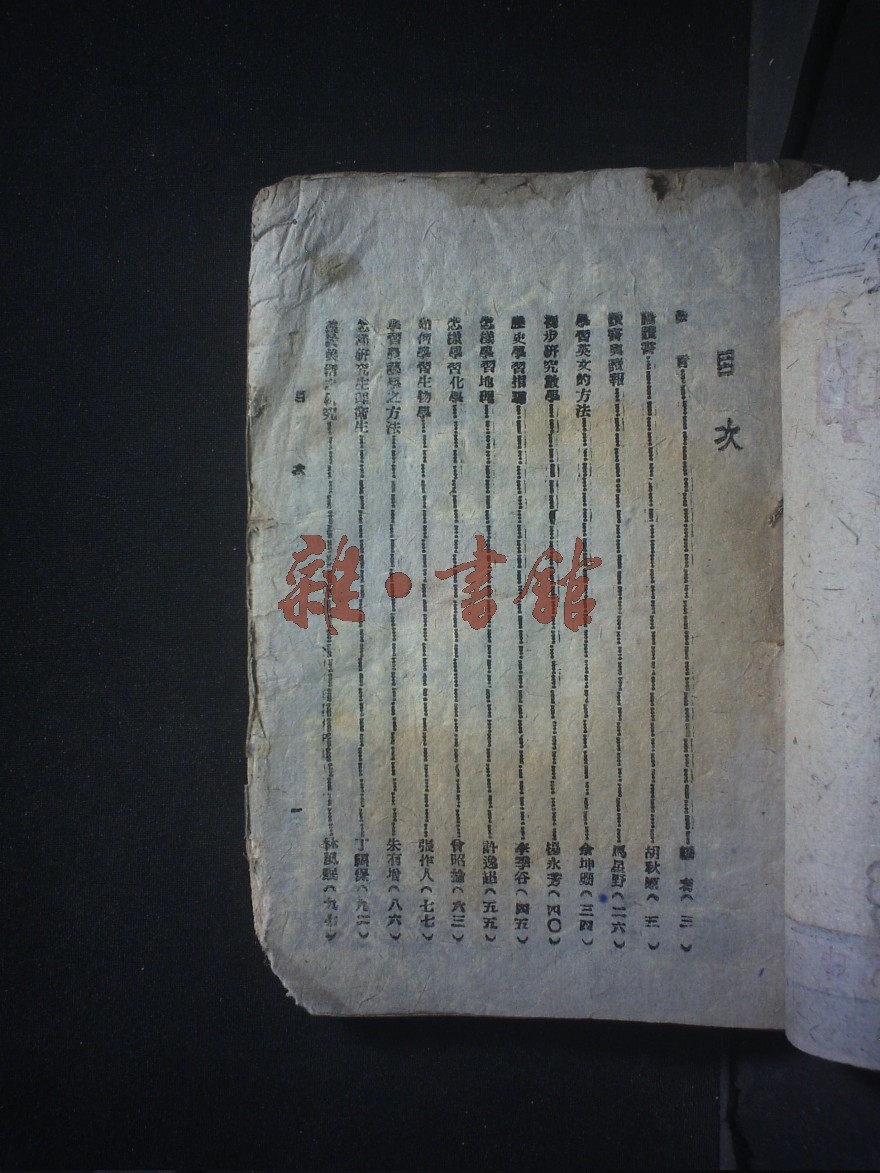 目 次
論讀書……胡秋原（五）
讀書與讀報……馬星野（二六）
學習英文的方法……余坤珊（三四）
初步研究數學……楊永芳（四〇）
歷史學習指導……李季谷（四五）
怎樣學習地理……許逸超（五五）
怎樣學習化學……曾昭掄（六三）
如何學習生物學……張作人（七七）
學習農藝學之方法……朱有增（八六）
怎樣研究生理衛生……丁（九二）
研究……林風眠（九七）
目 次
一
雜·書館